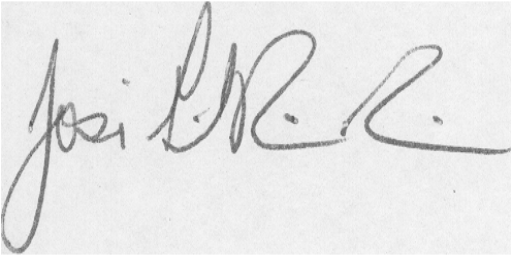 José L. R. R.